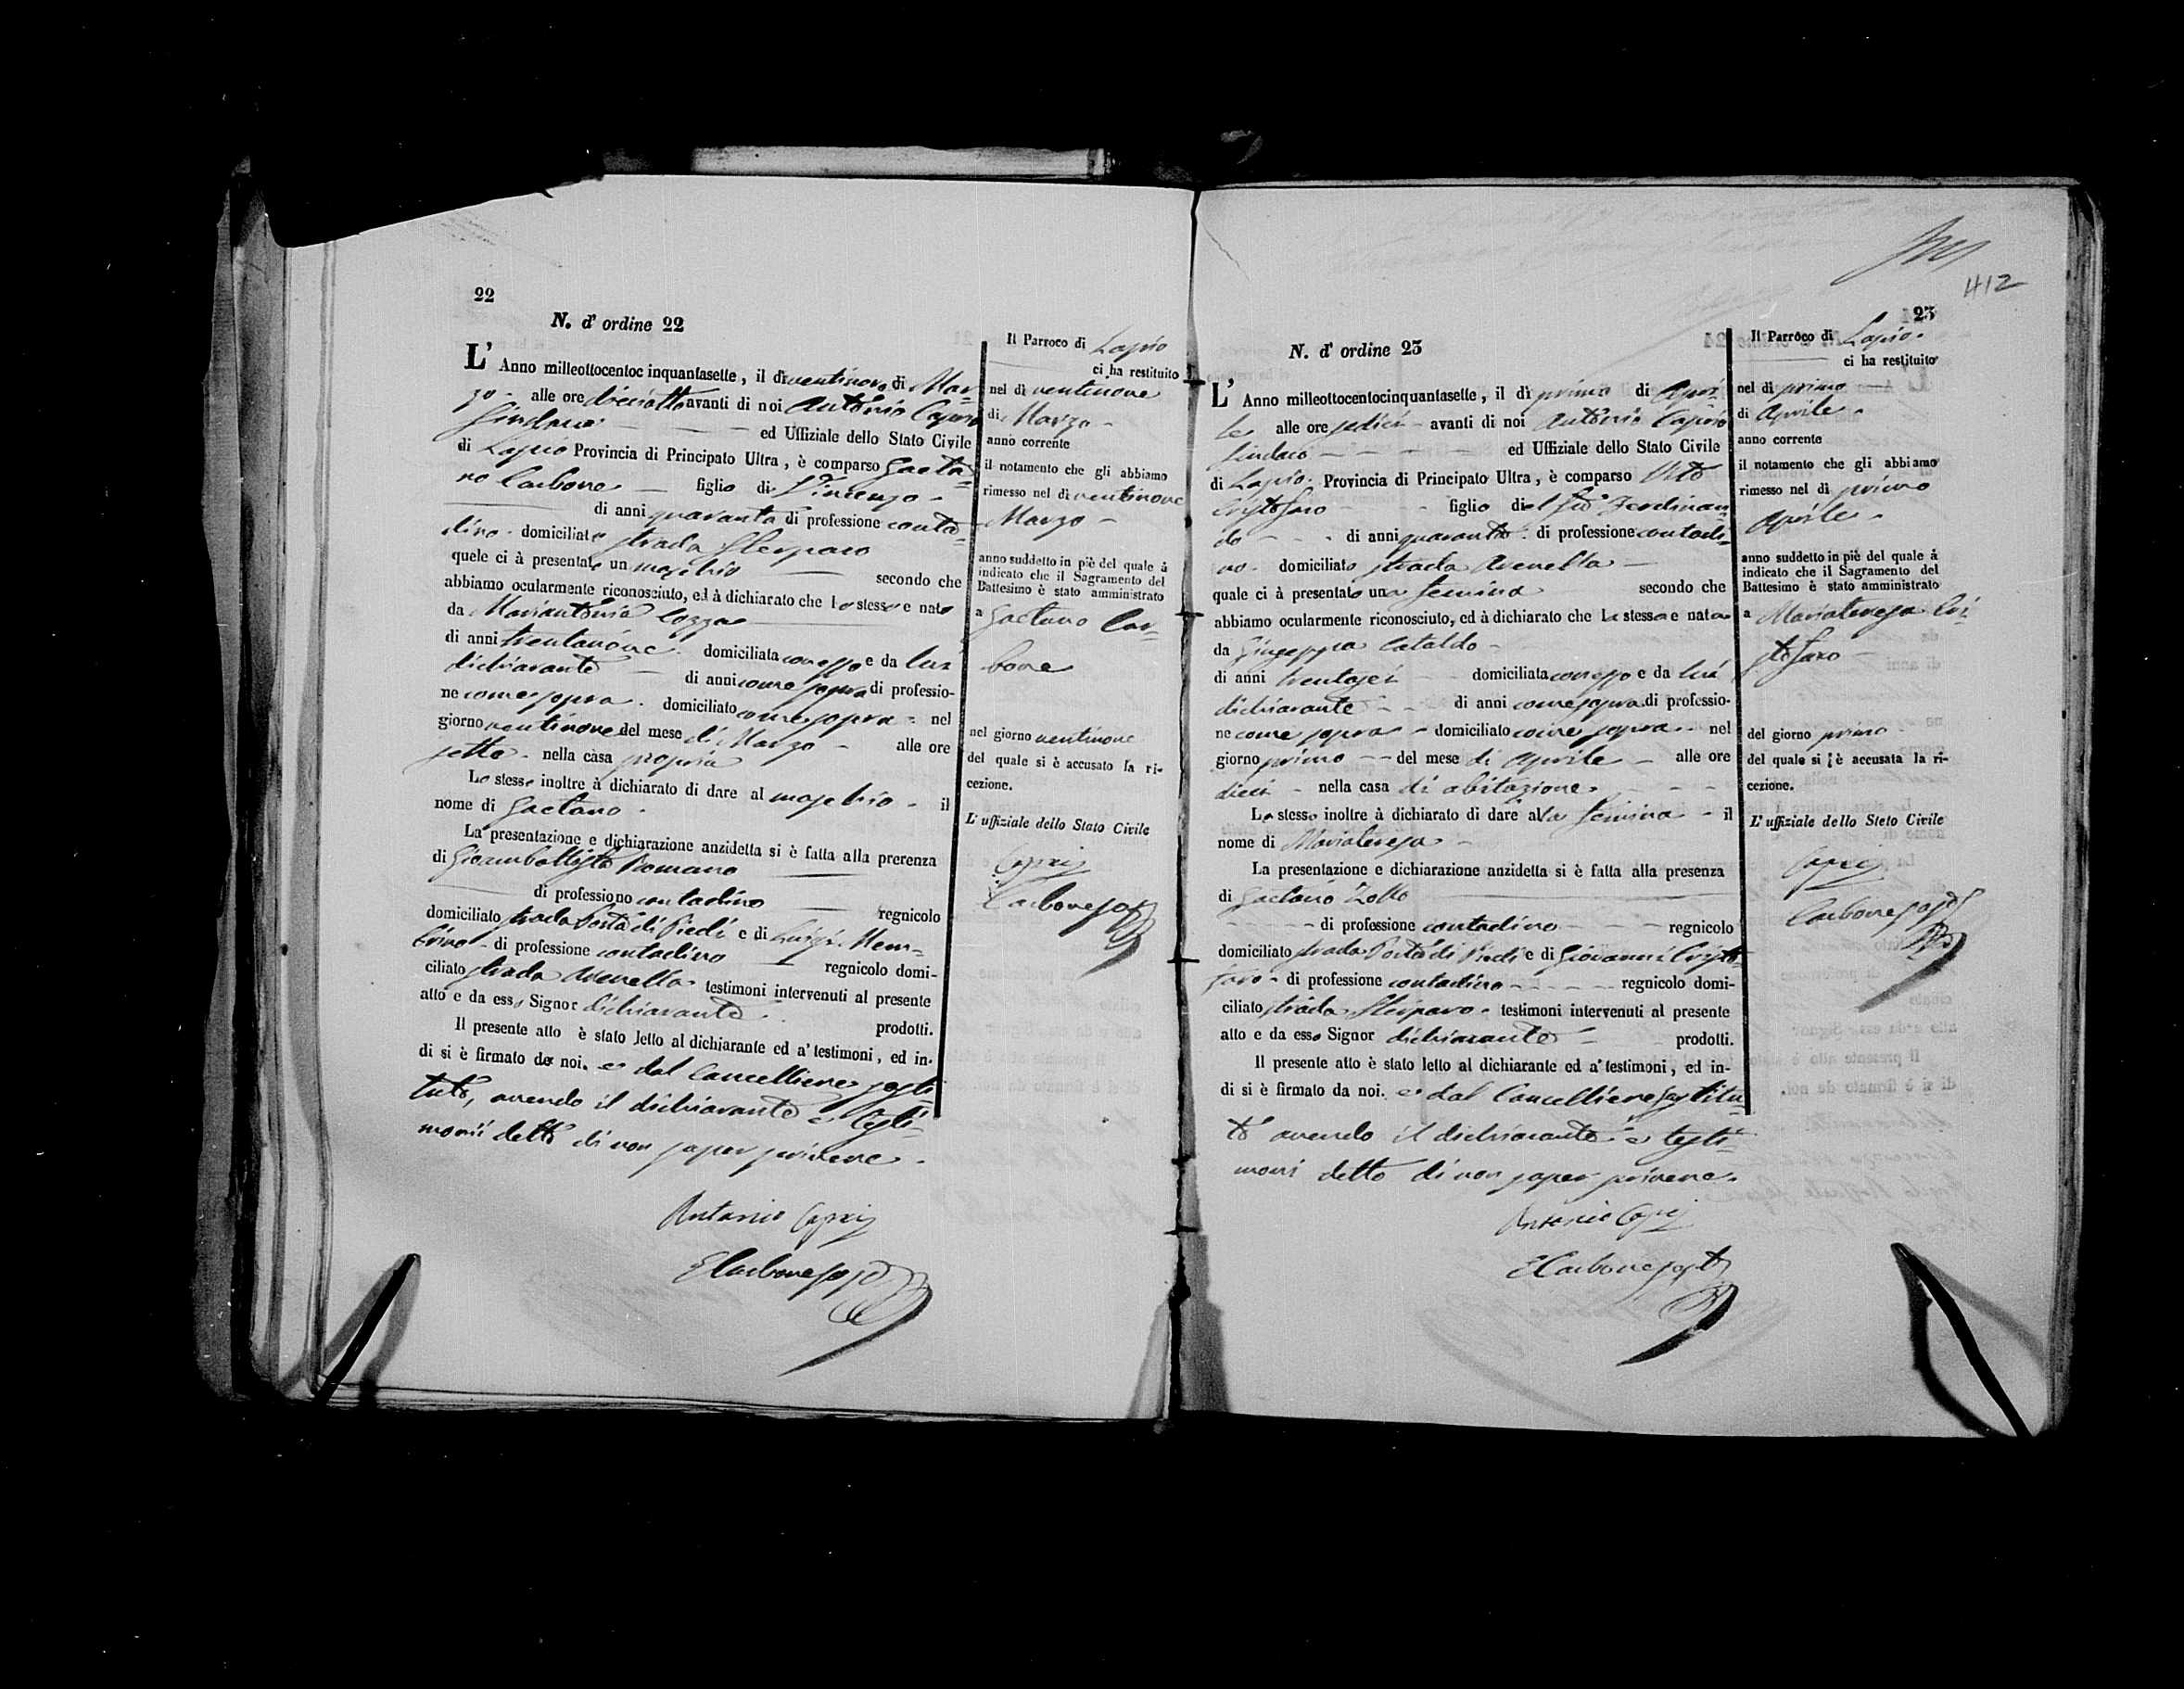 22
N. d' ordine 22
L' Anno milleottocentoc inquantasette, il dì ventinove di Mar-
zo - alle ore diciotto avanti di noi Antonio Caprio
Sindaco ed Uffiziale dello Stato Civile
di Lapio Provincia di Principato Ultra, è comparso Gaeta-
no Carbone figlio di Vincenzo -
di anni quaranta di professione conta-
dino - domiciliato strada
quele ci à presentato un maschio secondo che
abbiamo ocularmente riconosciuto, ed à dichiarato che lo stesso e nato
da Mariantonia Cozza
di anni trentanove domiciliata come sopra e da lui
dichiarante di anni come sopra di professio-
ne come sopra. domiciliato come sopra - nel
giorno ventinove del mese di Marzo - alle ore
sette - nella casa propria
Lo stesso inoltre à dichiarato di dare al maschio - il
nome di Gaetano -
La presentazione e dichiarazione anzidetta si è fatta alla prerenza
di Giambattista Romano
di professiono contadino regnicolo
domiciliato strada Porta di Piedi e di Luigi Mem-
brino - di professione contadino regnicolo domi-
ciliato strada Avenella - testimoni intervenuti al presente
atto e da esso Signor dichiarante prodotti.
Il presente atto è stato letto al dichiarante ed a' testimoni, ed in-
di si è firmato da noi. e dal Cancelliere sosti-
tuto, avendo il dichiarante e testi-
monii detto di non saper scrivere -
Antonio Caprio
E Carbone sost
Il Parroco di Lapio
ci ha restituito
nel dì ventinove
di Marzo -
anno corrente
il notamento che gli abbiamo
rimesso nel dì ventinove
Marzo -
anno suddetto in piè del quale à
indicato che il Sagramento del
Battesimo è stato amministrato
a Gaetano Car-
bone
nel giorno ventinove
del quale si è accusato la ri-
cezione.
L' uffiziale dello Stato Civile
Caprio
Carbone sost
412
23
N. d' ordine 23
L' Anno milleottocentocinquantasette, il dì primo di Apri-
le alle ore sedici - avanti di noi Antonio Caprio
Sindaco ed Uffiziale dello Stato Civile
di Lapio. Provincia di Principato Ultra, è comparso Vito
Cristofaro figlio del fù Ferdinan-
do - di anni quaranta - di professione contadi-
no - domiciliato strada Avenella -
quale ci à presentato una femina secondo che
abbiamo ocularmente riconosciuto, ed à dichiarato che la stessa e nata
da Giuseppa Cataldo -
di anni trentasei domiciliata come sopra e da lui
dichiarante - di anni come sopra di professio-
ne come sopra - domiciliato come sopra - nel
giorno primo - del mese di Aprile - alle ore
dieci - nella casa di abitazione -
Lo stesso inoltre à dichiarato di dare alla femina - il
nome di Mariateresa -
La presentazione e dichiarazione anzidetta si è fatta alla presenza
di Gaetano Zollo
di professione contadino - regnicolo
domiciliato strada Porta di Piedi e di Giovanni Cristo-
faro - di professione contadino - regnicolo domi-
ciliato strada testimoni intervenuti al presente
atto e da esso Signor dichiarante prodotti.
Il presente atto è stato letto al dichiarante ed a' testimoni, ed in-
di si è firmato da noi. e dal Cancelliere sostitu-
to avendo il dichiarante e testi-
moni detto di non saper scrivere.
Antonio Caprio
E Carbone sost
Il Parroco di Lapio.
ci ha restituito
nel dì primo
di Aprile -
anno corrente
il notamento che gli abbiamo
rimesso nel dì primo
Aprile -
anno suddetto in piè del quale à
indicato che il Sagramento del
Battesimo è stato amministrato
a Mariateresa Cri-
stofaro
del giorno primo
del quale si è accusata la ri-
cezione.
L' uffiziale dello Steto Civile
Caprio
Carbone sost